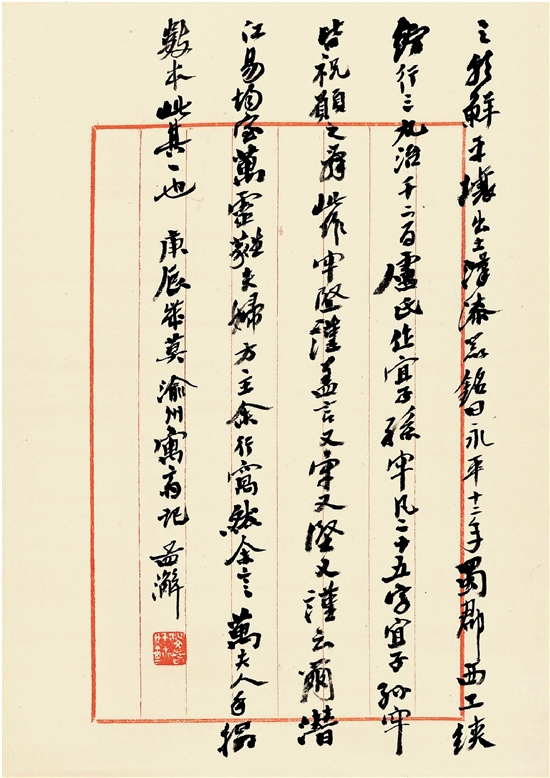 之朝鮮平壤出土漢漆器銘曰永平十二年蜀郡西工綊
紵行三丸治千二百盧氏作宜子孫牢凡二十五字宜子孫牢
皆祝願之辭此作牢堅謹蓋言又牢又堅又謹云爾潛
江易均室萬靈蕤夫婦方主余行窩余言萬夫人手搨
數本此其一也 庚辰歲莫渝州寓齋記 孟澥